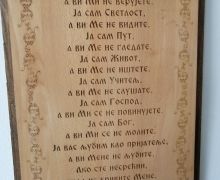 а ви Ми не верујете.
Ја сам Светлост,
а ви Ме не видите.
Ја сам Пут,
а ви Ме не гледате.
Ја сам Живот,
а ви Ме не иштете.
Ја сам Учитељ,
а ви Ме не слушате.
Ја сам Господ,
а ви Ми се не повинујете.
Ја сам Бог,
а ви Ми се не молите.
Ја вас љубим као пријатеље,
а ви Мене не љубите.
Ако сте несрећни,
не кривите Мене.